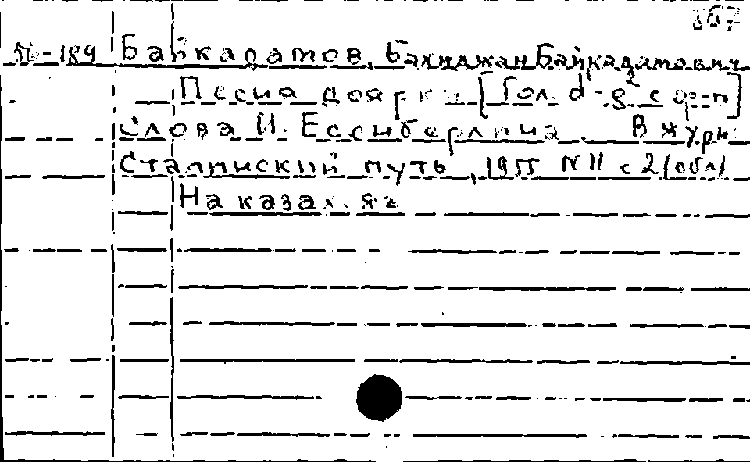 367
М-184 Байкадамов, Бахитжан Байкадамович
Песня доярки [Гол. d¹-g² с ф-п]
Слова И. Есенберлина. В журн:
Сталинский путь, 1955 № 11 с 2 (обл)
На казах. яз